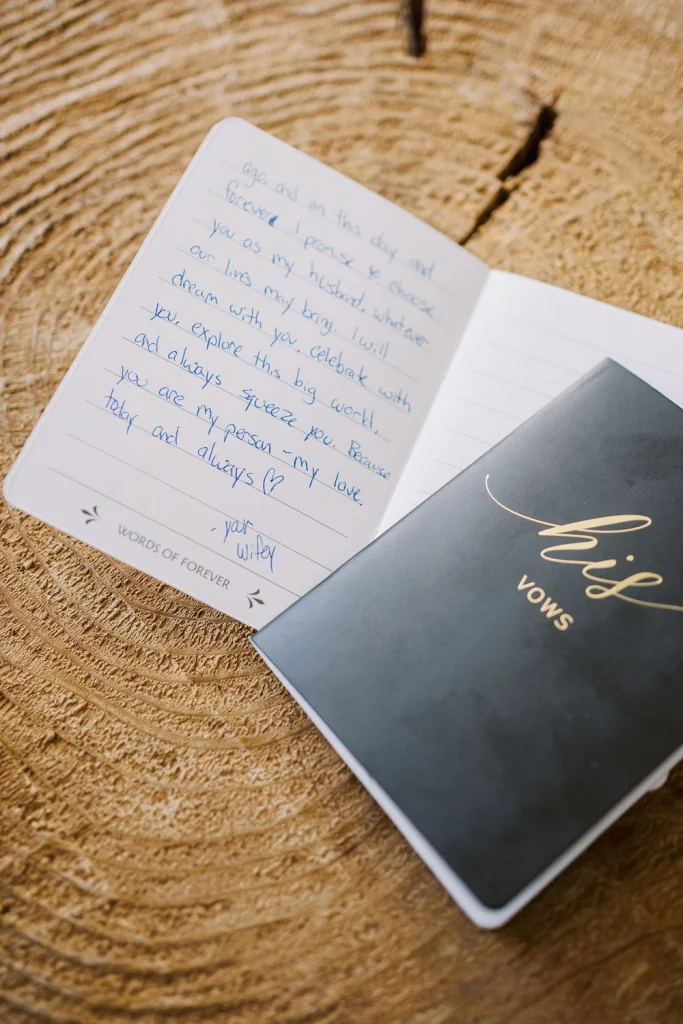 age, and on this day and
forever. I promise to choose
you as my husband. whatever
our lives may bring. I will
dream with you, celebrate with
you, explore this big world,
and always squeeze you. Because
you are my person - my love.
today and always ♡
- your
wifey
WORDS OF FOREVER
his
VOWS